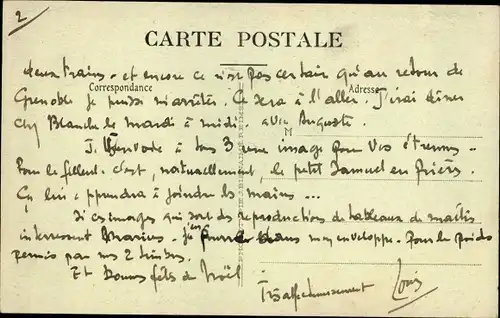 2
CARTE POSTALE
Correspondance
Adresse
deux trains - et encore ce n'est pas certain qu'au retour de
Grenoble je puisse m'arrêter. Ce sera à l'aller. J'irai dîner
chez Blanche le mardi à midi avec Auguste.
J'envoie à tous 3 une image pour vos étrennes -
Pour le filleul c'est, naturellement, le petit Samuel en prières.
Ça lui apprendra à joindre les mains ...
Si ces images qui sont des reproductions de tableaux de maîtres
intéressent Marius - j'en dans mon enveloppe. Pour le poids
permis par mes 2 timbres.
Et bonnes fêtes de Noël
Très affectueusement Louis